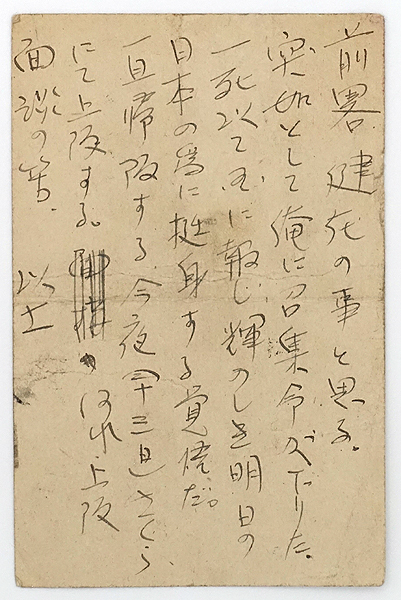 前畧 健在の事と思ふ。
突如として俺に召集令が下りた。
一死以て国に報じ輝かしき明日の
日本の為に挺身する覚悟だ。
一旦帰阪する今夜 十三日さくら
にて上阪する。 何れ上阪
面談の節。 以上